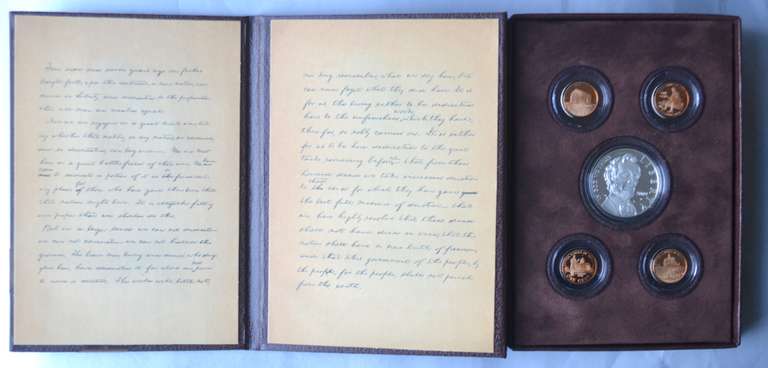 Four score and seven years ago our fathers
brought forth, upon this continent, a new nation, con-
ceived in Liberty, and dedicated to the proposition
that all men are created equal.
Now we are engaged in a great civil war, test-
ing whether that nation, or any nation, so conceived,
and so dedicated, can long endure. We are met
here on a great battle-field of that war. We
of it
place of those who here gave their lives that
that nation might live. It is altogether fitting
and proper that we should do this.
But in a larger sense we can not dedicate
we can not consecrate we can not hallow this
ground. The brave men, living and dead, who
here, have consecrated it far above our poor
to add or detract. The world will little note,
nor long remember, what we say here, but
can never forget what they did here. It is
for us, the living, rather to be dedicated
here to the unfinished work which they have,
thus far, so nobly carried on. It is rather
for us to be here dedicated to the great
task remaining before us that from these
honored dead we take increased devotion
to the cause for which they here gave
the last full measure of devotion that
we here highly resolve that these dead
shall not have died in vain; that the
nation shall have a new birth of freedom,
and that this government of the people, by
the people, for the people, shall not perish
from the earth.
LIBERTY